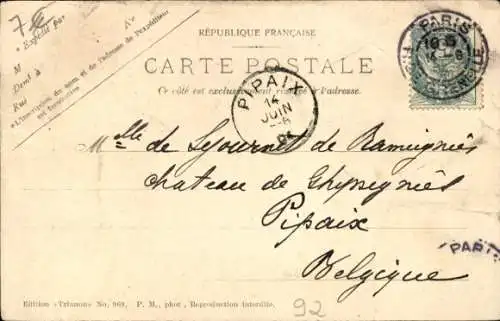 7€
« Expédié par
M
Demt à
Rue
« L'inscription du nom et de l'adresse de l'expéditeur
est facultative
RÉPUBLIQUE FRANÇAISE
CARTE POSTALE
Ce côté est exclusivement réservé à l'adresse.
PARIS
PIPAIX
14
JUIN
Melle de Sejournet de Rameignies
chateau de Ghyssegnies
Pipaix
Belgique
PART
Edition «Trianon» No. 969, P. M., phot , Reproduction interdite.
92